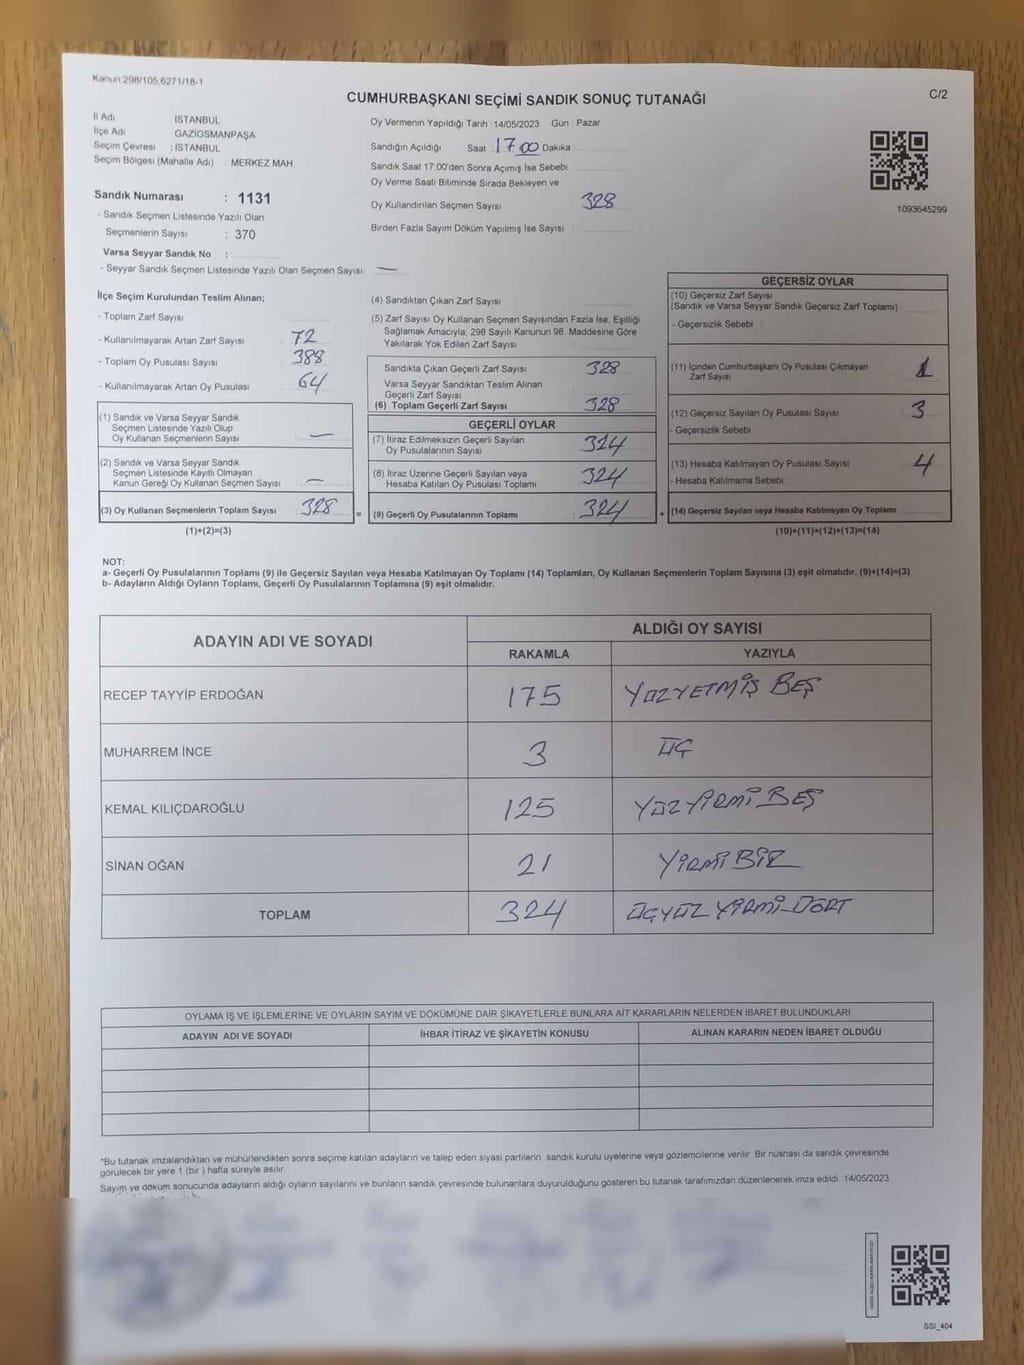 Kanun 298/105,6271/18-1
C/2
CUMHURBAŞKANI SEÇİMİ SANDIK SONUÇ TUTANAĞI
İl Adı İSTANBUL
İlçe Adı GAZİOSMANPAŞA
Seçim Çevresi : İSTANBUL
Seçim Bölgesi (Mahalle Adı) : MERKEZ MAH
Sandık Numarası : 1131
- Sandık Seçmen Listesinde Yazılı Olan
Seçmenlerin Sayısı : 370
Varsa Seyyar Sandık No :
- Seyyar Sandık Seçmen Listesinde Yazılı Olan Seçmen Sayısı : —
Oy Vermenin Yapıldığı Tarih : 14/05/2023 Gün : Pazar
Sandığın Açıldığı Saat : 17 00 Dakika
Sandık Saat 17:00'den Sonra Açımış İse Sebebi :
Oy Verme Saati Bitiminde Sırada Bekleyen ve
Oy Kullandırılan Seçmen Sayısı : 328
Birden Fazla Sayım Döküm Yapılmış İse Sayısı :
1093645299
İlçe Seçim Kurulundan Teslim Alınan;
- Toplam Zarf Sayısı :
- Kullanılmayarak Artan Zarf Sayısı : 72
- Toplam Oy Pusulası Sayısı : 388
- Kullanılmayarak Artan Oy Pusulası : 64
(1) Sandık ve Varsa Seyyar Sandık
Seçmen Listesinde Yazılı Olup
Oy Kullanan Seçmenlerin Sayısı : —
(2) Sandık ve Varsa Seyyar Sandık
Seçmen Listesinde Kayıtlı Olmayan
Kanun Gereği Oy Kullanan Seçmen Sayısı : —
(3) Oy Kullanan Seçmenlerin Toplam Sayısı : 328
(1)+(2)=(3)
(4) Sandıktan Çıkan Zarf Sayısı :
(5) Zarf Sayısı Oy Kullanan Seçmen Sayısından Fazla İse, Eşitliği
Sağlamak Amacıyla, 298 Sayılı Kanunun 98. Maddesine Göre
Yakılarak Yok Edilen Zarf Sayısı :
Sandıkta Çıkan Geçerli Zarf Sayısı : 328
Varsa Seyyar Sandıktan Teslim Alınan
Geçerli Zarf Sayısı :
(6) Toplam Geçerli Zarf Sayısı : 328
GEÇERLİ OYLAR
(7) İtiraz Edilmeksizin Geçerli Sayılan
Oy Pusulalarının Sayısı : 324
(8) İtiraz Üzerine Geçerli Sayılan veya
Hesaba Katılan Oy Pusulası Toplamı : 324
= (9) Geçerli Oy Pusulalarının Toplamı : 324 +
GEÇERSİZ OYLAR
(10) Geçersiz Zarf Sayısı
(Sandık ve Varsa Seyyar Sandık Geçersiz Zarf Toplamı) :
- Geçersizlik Sebebi :
(11) İçinden Cumhurbaşkanı Oy Pusulası Çıkmayan
Zarf Sayısı : 1
(12) Geçersiz Sayılan Oy Pusulası Sayısı : 3
- Geçersizlik Sebebi :
(13) Hesaba Katılmayan Oy Pusulası Sayısı : 4
- Hesaba Katılmama Sebebi :
(14) Geçersiz Sayılan veya Hesaba Katılmayan Oy Toplamı :
(10)+(11)+(12)+(13)=(14)
NOT:
a- Geçerli Oy Pusulalarının Toplamı (9) ile Geçersiz Sayılan veya Hesaba Katılmayan Oy Toplamı (14) Toplamları, Oy Kullanan Seçmenlerin Toplam Sayısına (3) eşit olmalıdır. (9)+(14)=(3)
b- Adayların Aldığı Oyların Toplamı, Geçerli Oy Pusulalarının Toplamına (9) eşit olmalıdır.
ADAYIN ADI VE SOYADI
ALDIĞI OY SAYISI
RAKAMLA YAZIYLA
RECEP TAYYİP ERDOĞAN 175 YÜZYETMİŞ BEŞ
MUHARREM İNCE 3 ÜÇ
KEMAL KILIÇDAROĞLU 125 YÜZ YİRMİ BEŞ
SİNAN OĞAN 21 YİRMİ BİR
TOPLAM 324 ÜÇYÜZ YİRMİ-DÖRT
OYLAMA İŞ VE İŞLEMLERİNE VE OYLARIN SAYIM VE DÖKÜMÜNE DAİR ŞİKAYETLERLE BUNLARA AİT KARARLARIN NELERDEN İBARET BULUNDUKLARI
ADAYIN ADI VE SOYADI İHBAR İTİRAZ VE ŞİKAYETİN KONUSU ALINAN KARARIN NEDEN İBARET OLDUĞU
*Bu tutanak imzalandıktan ve mühürlendikten sonra seçime katılan adayların ve talep eden siyasi partilerin sandık kurulu üyelerine veya gözlemcilerine verilir. Bir nüshası da sandık çevresinde
görülecek bir yere 1 (bir ) hafta süreyle asılır.
Sayım ve döküm sonucunda adayların aldığı oyların sayılarını ve bunların sandık çevresinde bulunanlara duyurulduğunu gösteren bu tutanak tarafımızdan düzenlenerek imza edildi. 14/05/2023
SSI_404